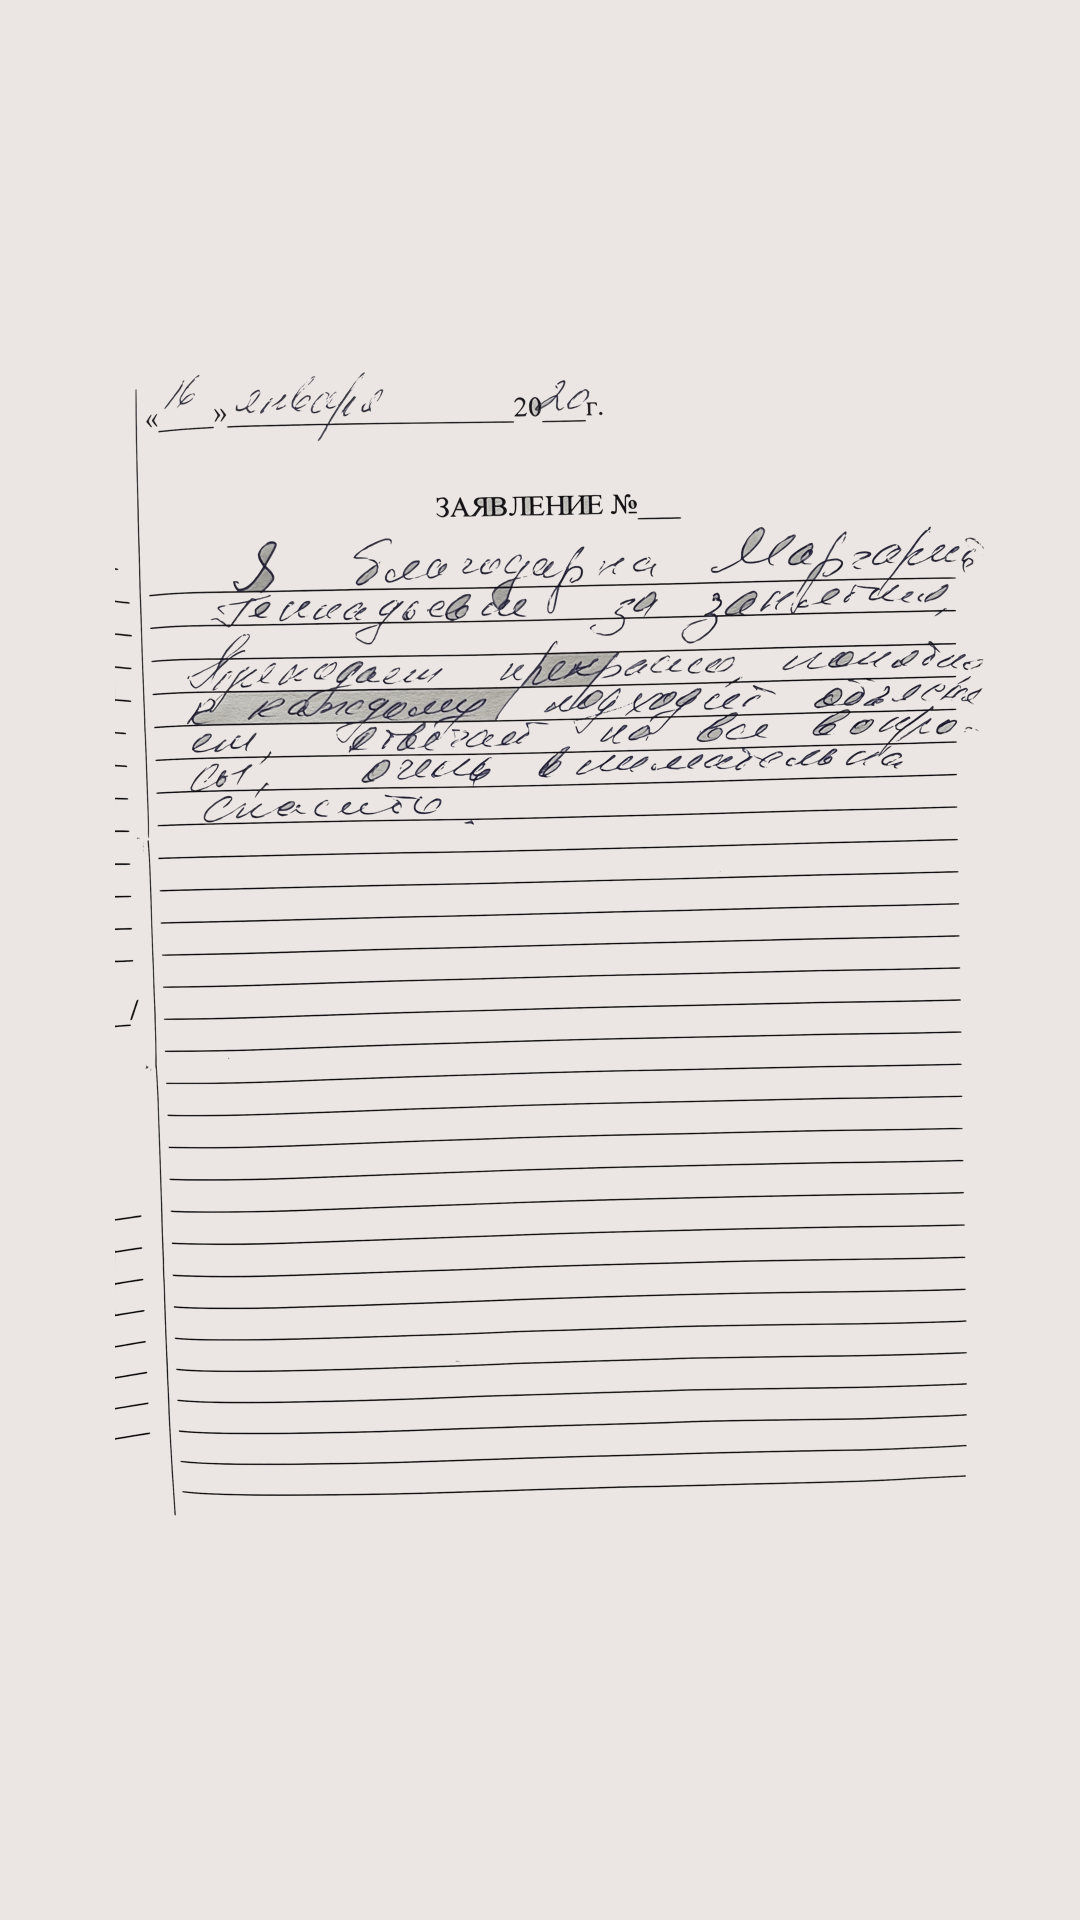 «16» января 2020г.
ЗАЯВЛЕНИЕ №___
Я благодарна Маргарите
Геннадьевне за занятия,
Преподает прекрасно, понятно
к каждому подходит объясня
ет, отвечает на все вопро-
сы, очень внимательна
Спасибо.